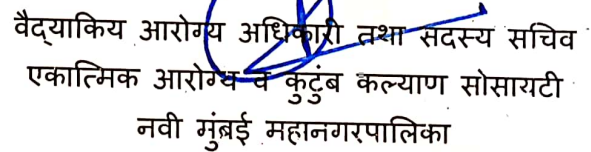 वैद्याकिय आरोग्य अधिकारी तथा सदस्य सचिव
एकात्मिक आरोग्य व कुटुंब कल्याण सोसायटी
नवी मुंबई महानगरपालिका